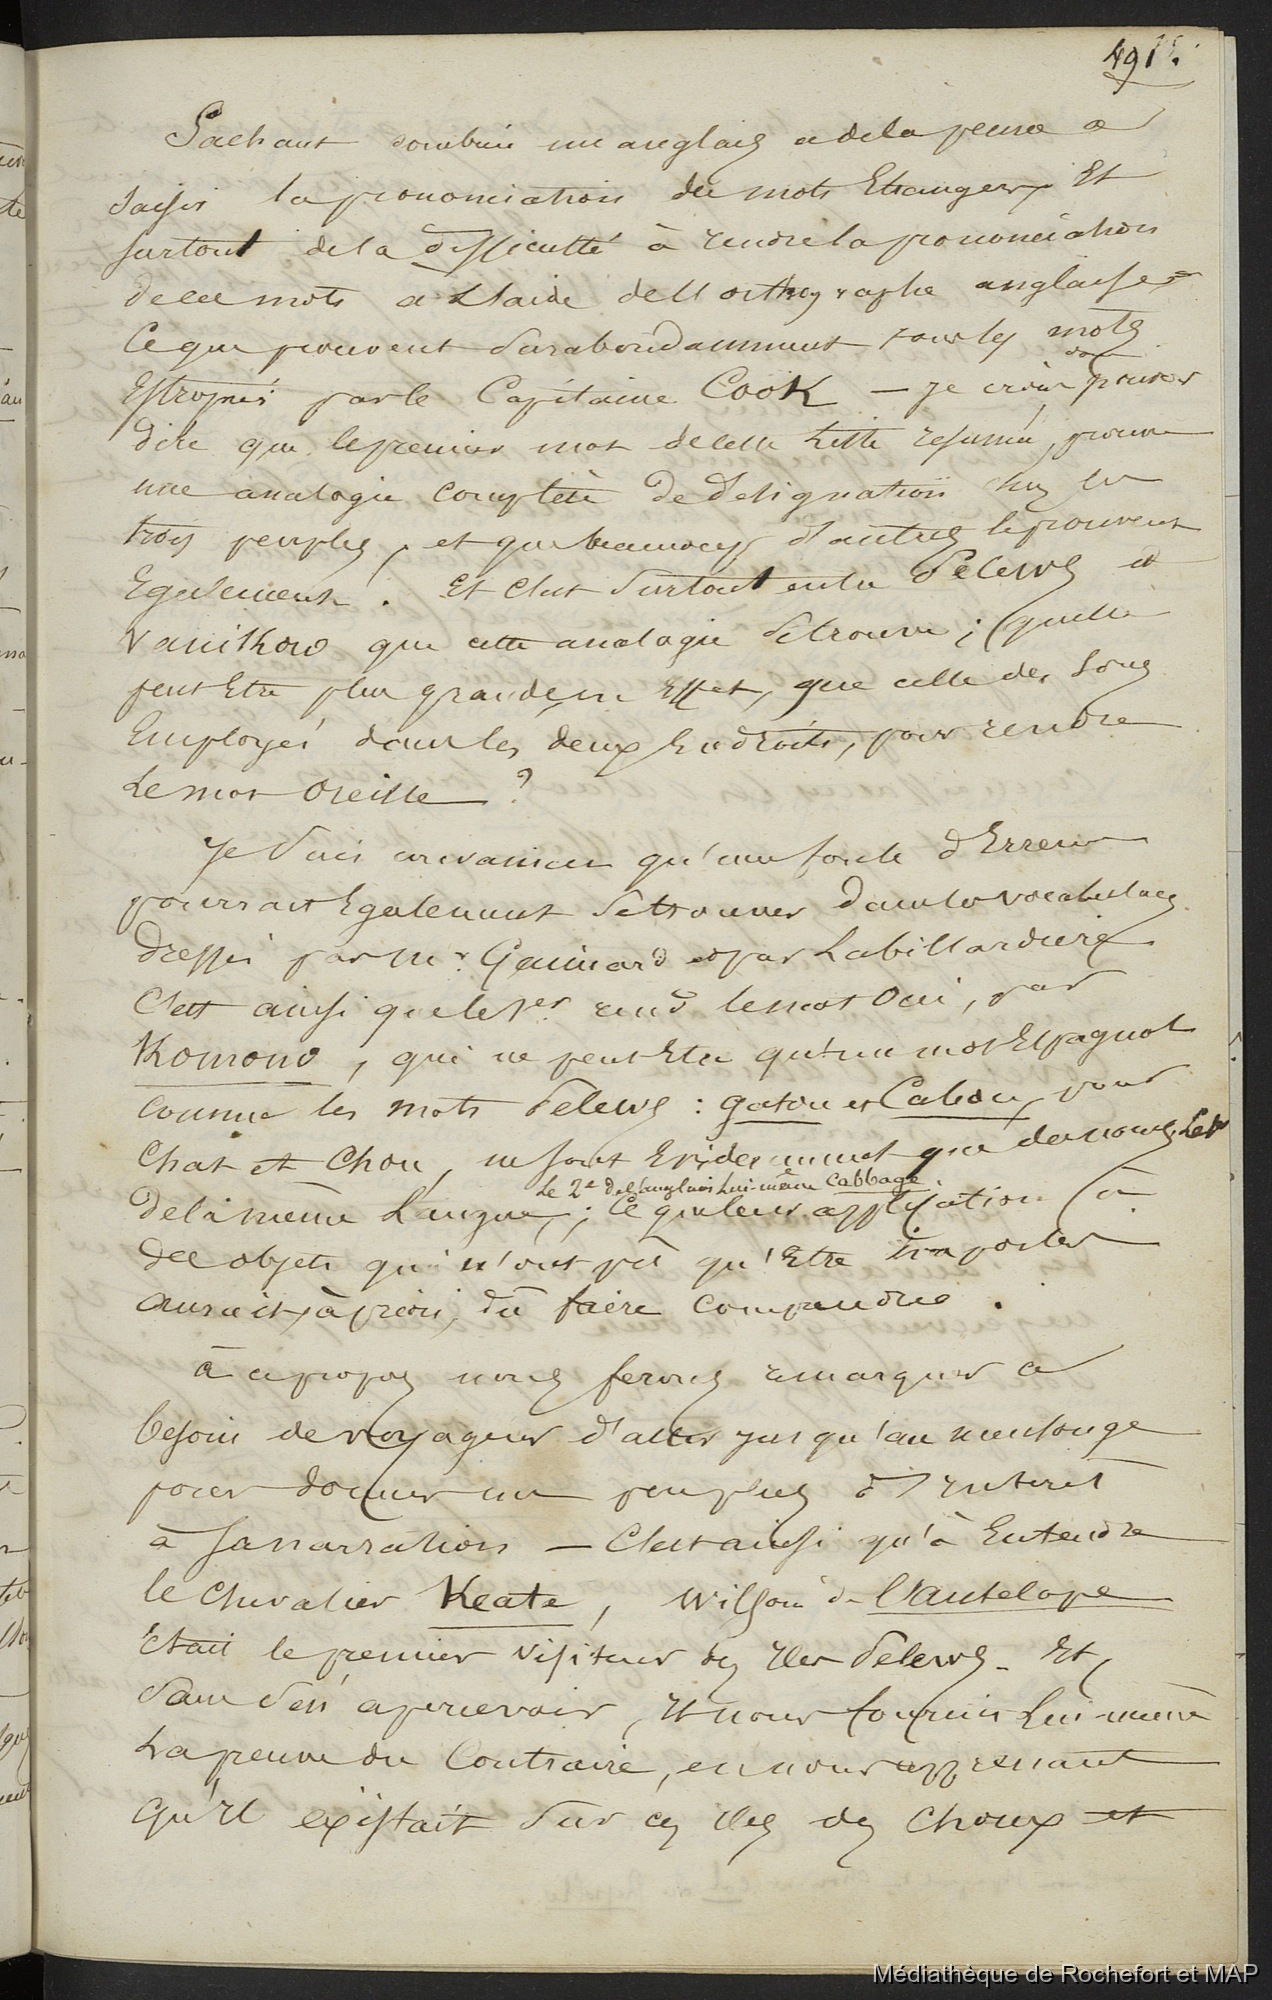 491.
Sachant combien un anglais a de la peine a
saisir la prononciation des mots Etrangers, Et
surtout de la difficulté à rendre la prononciation
de ces mots a L'aide de l'orthographe anglaise
Ce que prouvent surabondamment tous les mots
Estropiés par le Capitaine Cook — je crois donc pouvoir
dire que le premier mot de cette Liste resumée, prouve
une analogie complète de designation chez les
trois peuples, et que beaucoup d'autres le prouvent
Egalement. Et C'est surtout entre Pelews et
Vanikoro que cette analogie se trouve; (quelle
peut Etre plus grande, en Effet, que celle des sons
Employés dans les deux Endroits, pour rendre
Le mot Oreille ?
Je suis convaincu qu'une foule d'Erreurs
pourrait Egalement se trouver dans les vocabulaires
dressés par Mr. Gaimard et par Labillardiere
C'est ainsi que le 1er rend le mot Oui, par
Komono, qui ne peut Etre qu'un mot Espagnol
comme les mots Pelews : gaton et Cabou, pour
Chat et Chou, ne sont Evidemment que des noms,
de la même Langue, ; Ce que leur application (à
Le 2e de l'anglais Lui-même Cabbage.
des objets qui n'ont pu qu'Etre importés
aurait, à priori, dû faire comprendre.
à ce propos nous ferons remarquer ce
besoin de voyageur d'aller jusqu'au mensonge
pour donner un peu plus d'Interêt
à sa narration — C'est ainsi qu'à Entendre
le Chevalier Keate, Wilson de l'antelope
Etait le premier visiteur des Iles Pelews. Et,
sans s'en apercevoir, Il nous fournit Lui-même
La preuve du Contraire, en nous apprenant
qu'Il existait sur ces Iles des Choux et
Médiathèque de Rochefort et MAP